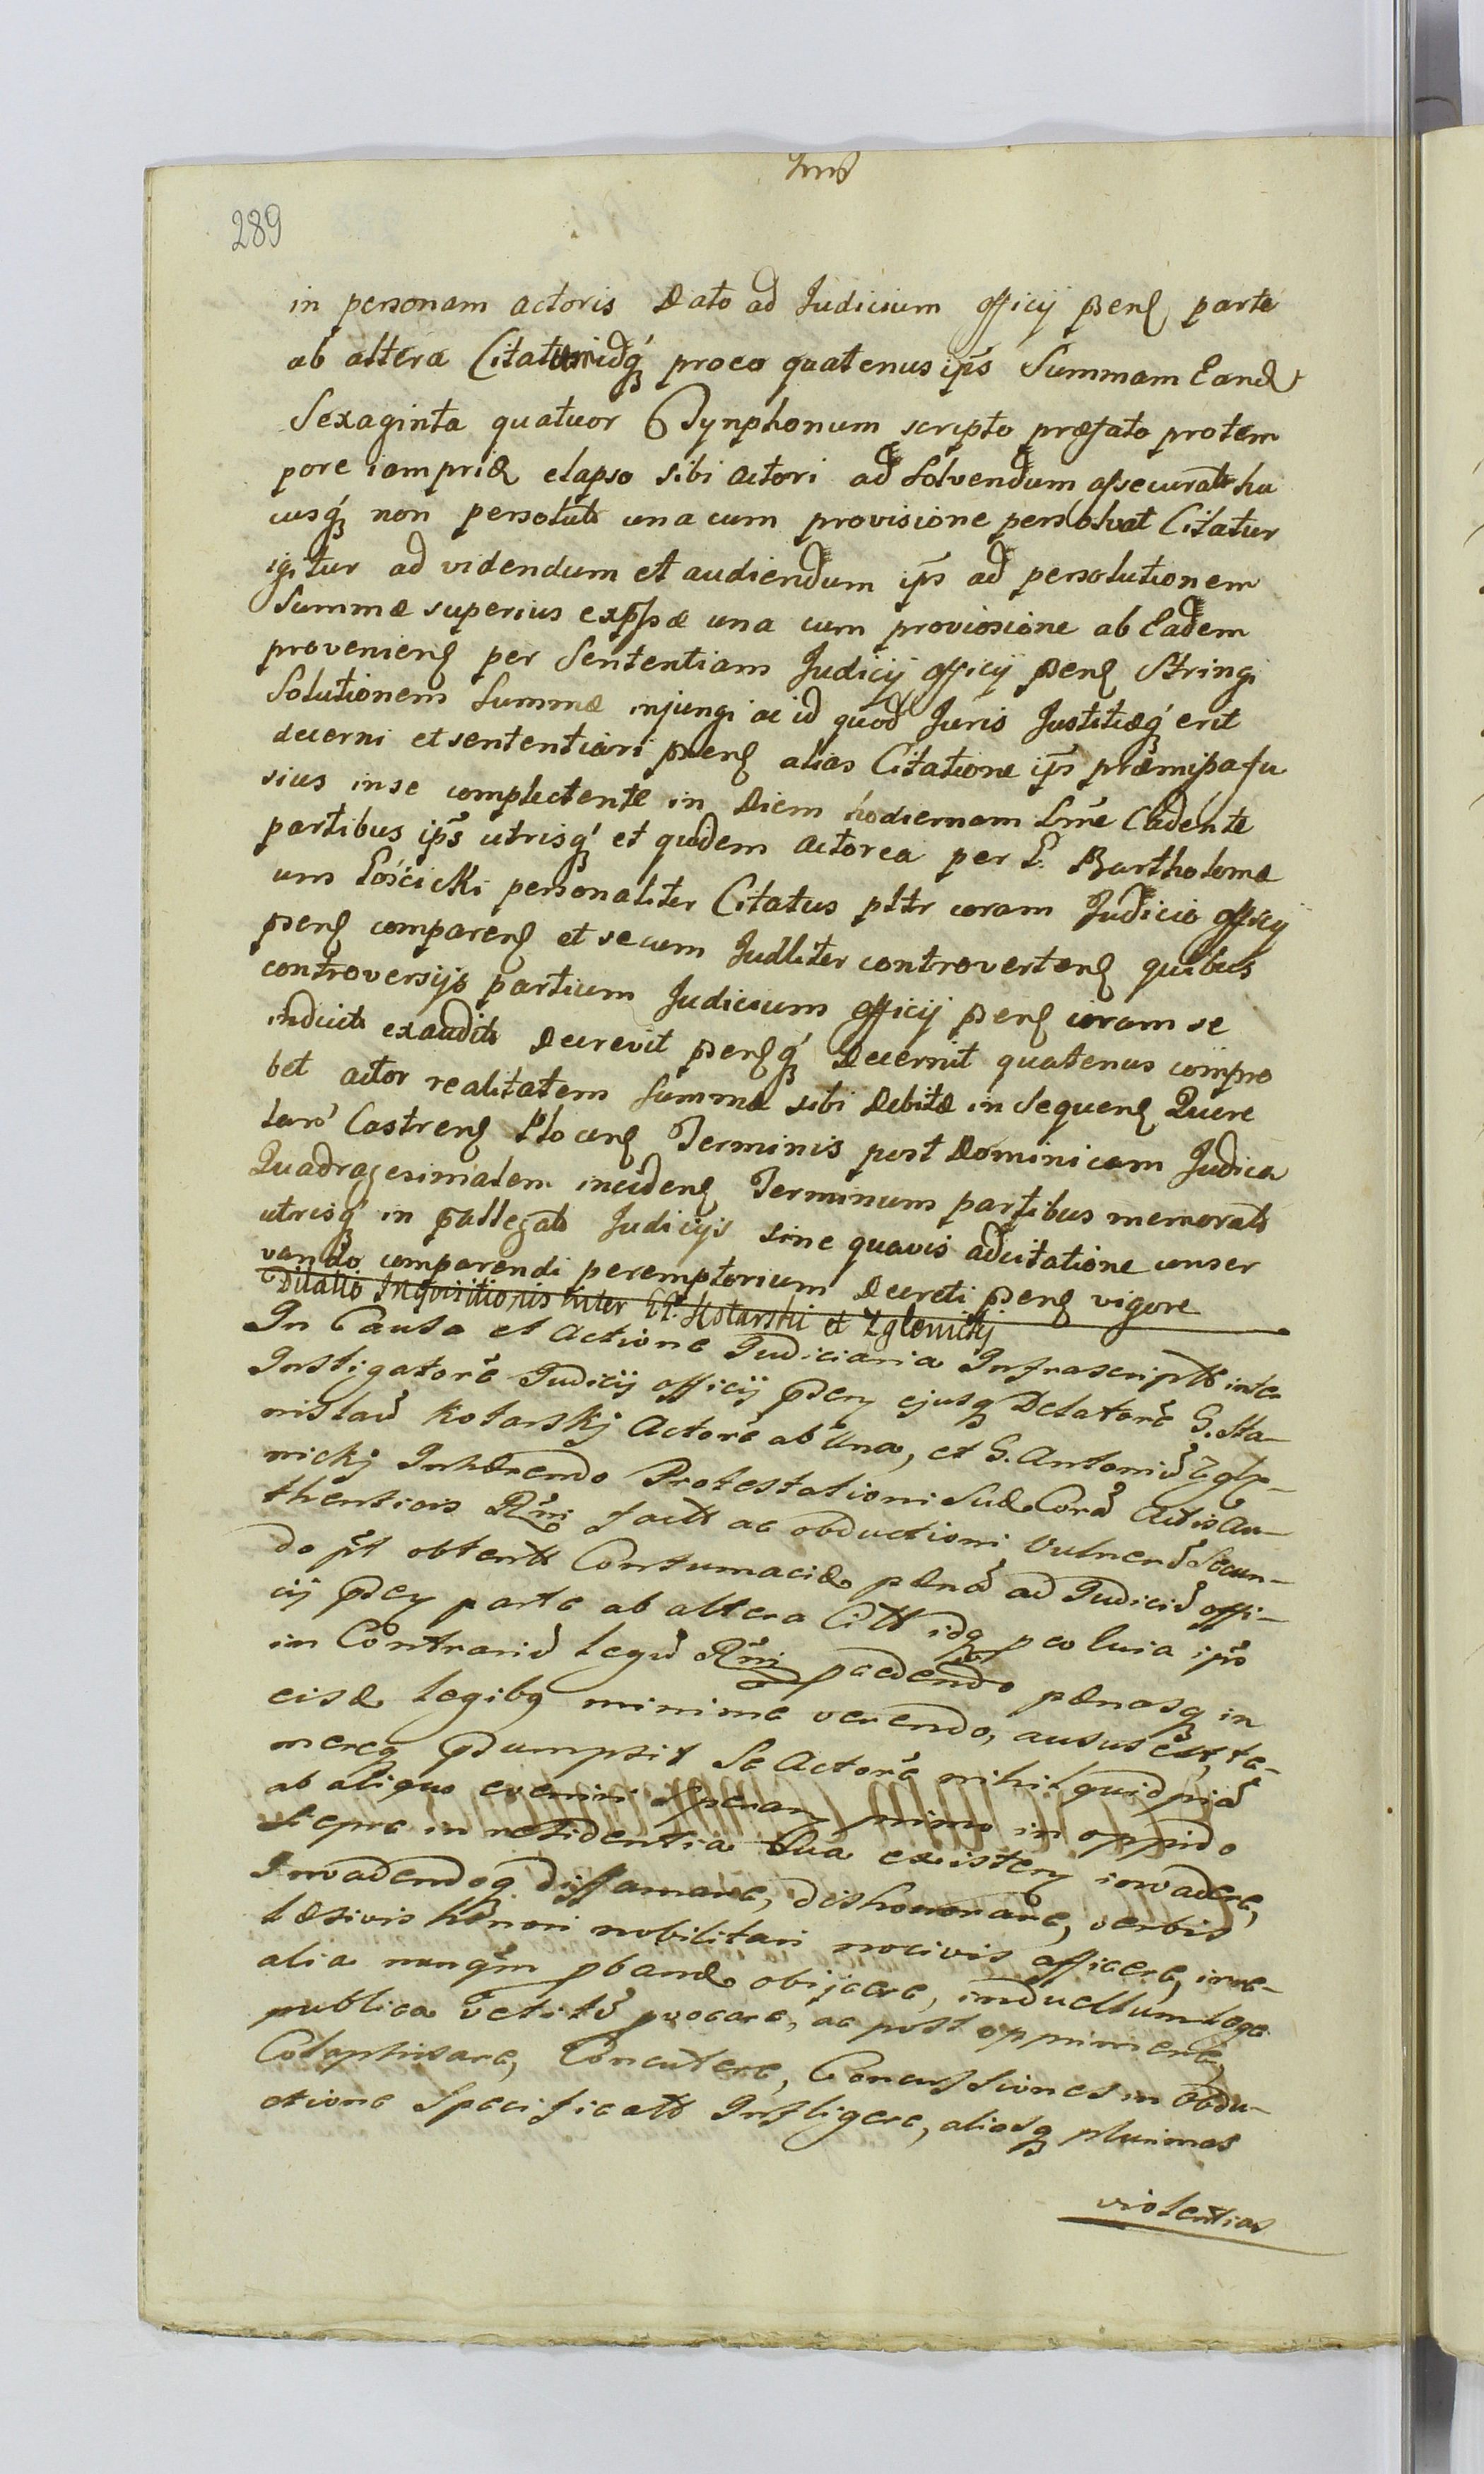 289
in personam actoris Dato ad Judicium officij pñs parte
ab altera Citatum idq́ proeo quatenus ip̃s Summam Eand
Sexaginta quatuor Tynphonum scripto præfato protem
pore iam prid elapso sibi actori ad solvendum assecurats hu
cusq́ non persoluts una cum provisione persolvat Citatur
igitur ad videndum et audiendum ip̃s ad persolutionem
Summæ superius exp̃ssæ una cum proviosione ab Eadem
provenien per Sententiam Judicij officij pñs Stringi
Solutionem Summæ injungi ac id quod Juris Justitiæq́ erit
decerni et sententiari pñs alias Citatione ip̃s præmissa fu
sius in se complectente in Diem hodiernam Lr̃me Cadente
partibus ip̃s utrisq́ et quidem actorea per P. Bartholomæ
um Łościcki personaliter Citatus pltr coram Judicio officij
pñs comparen et secum Judlliter controverten quibus
controversijs partium Judicium officij pñs coram se
inducts exaudits Decrevit pñsq́ Decernit quatenus compro
bet actor realitatem Summæ sibi Debitæ in Sequen Quere
lar̃ Castren Plocen Terminis post Dominicam Judica
Quadragesimalem inciden Terminum partibus memorats
utrisq́ in p̃allegats Judicijs sine quavis adcitatione conser
vando comparendi peremptorium Decreti pñs vigore
Dilatio Inquisitionis inter PP. Kotarski et Zglenicki
In Causa et Actione Judiciaria Infrascripts inter
Instigatorẽ Judicij officij pñs ejusq Delatorẽ G. Sta-
nislaũ Kotarskj Actorẽ ab una, et G. Antoniũ Zgle-
nickj Inhærendo Protestationi suæ Corã Actis Au-
thenticis R̃ni facts ac obductioni Vulnerũ Secun-
do p̃t obtents Contumaciæ pænã ad Judiciũ offi-
cij pñs parte ab altera Citts idq p eo quia ip̃s
in Contrariũ legũ R̃ni pcedendo pænasq in
eisd legibq minime verendo, ausus est, te-
mereq p̃sumpsit Se Actorẽ nihil quidpiã
ab aliquo eveniri speran, primo in oppido
Siepre in residentia sua existen invadere,
Invadendoq diffamare, dishonorare, verbis
læsivis honori nobilitari nocivis afficere, inve-
alia nunq̃m pband obijcere, in duellum lege
publica vetitũ pvocare, ac post opprimere,
Colaphisare, Concutere, Concussiones in obdu-
ctione specificats Infligere, aliasq plurimas
violentias